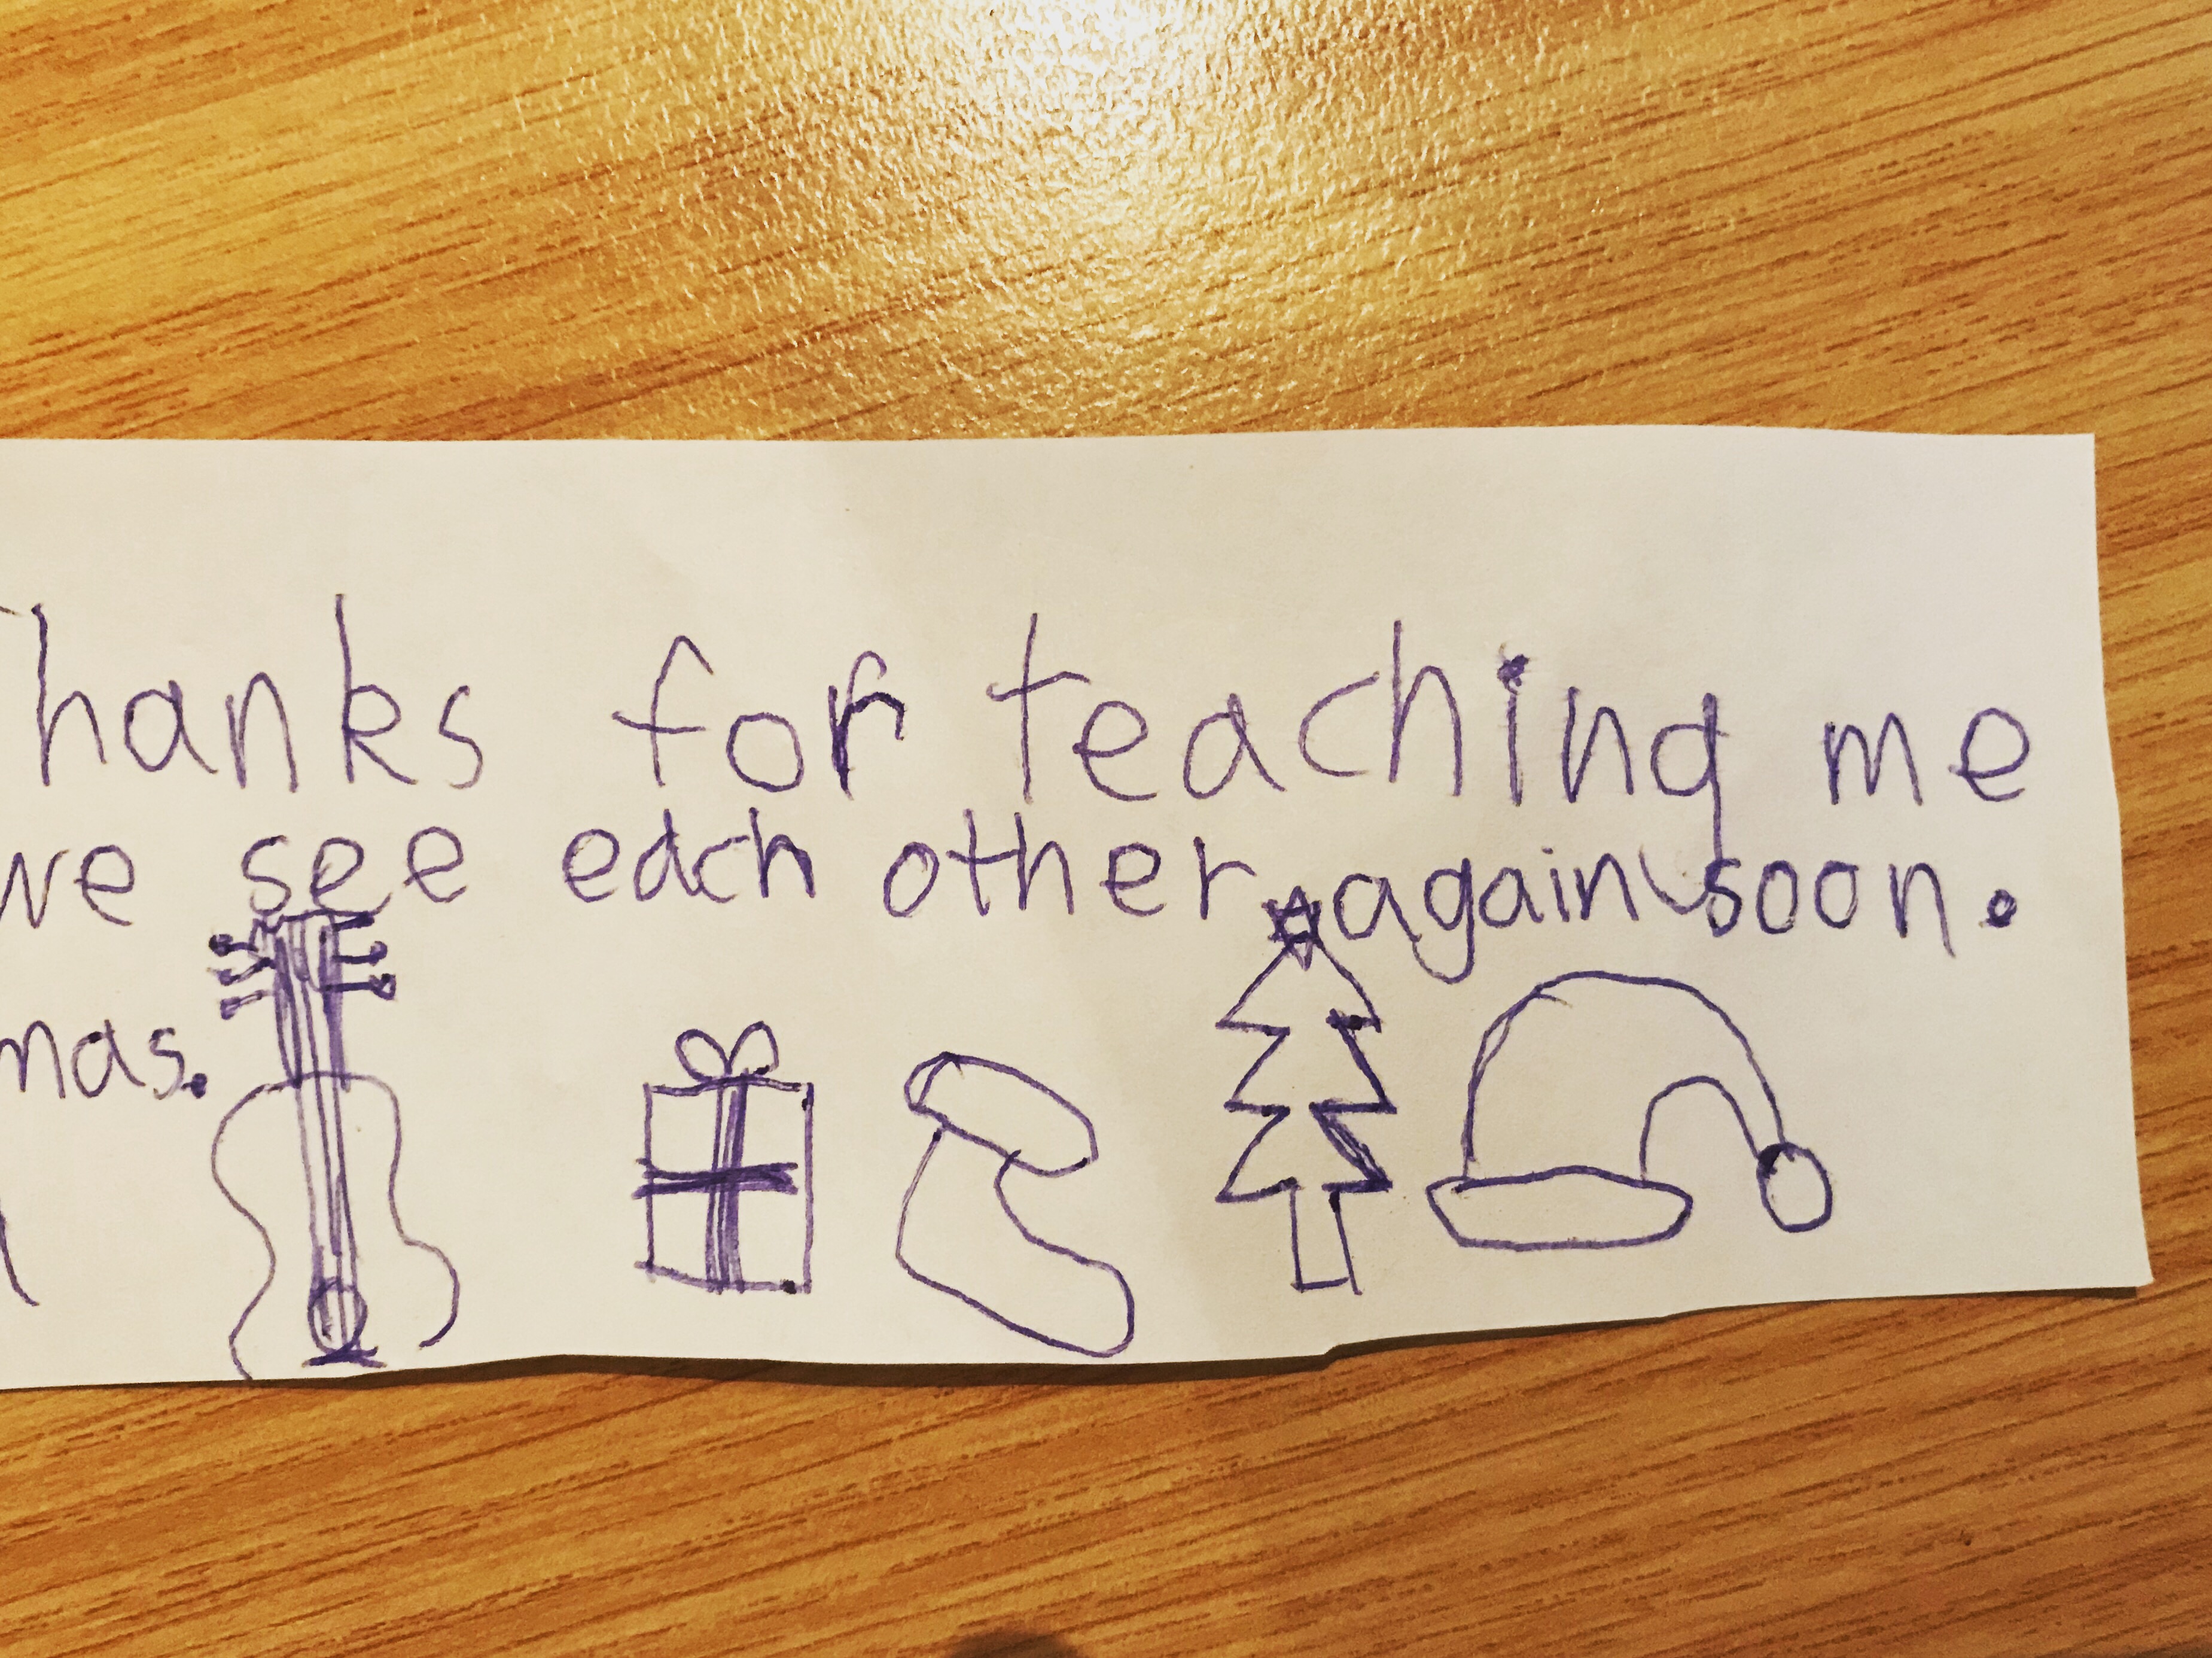 Thanks for teaching me
we see each other again soon.
mas.